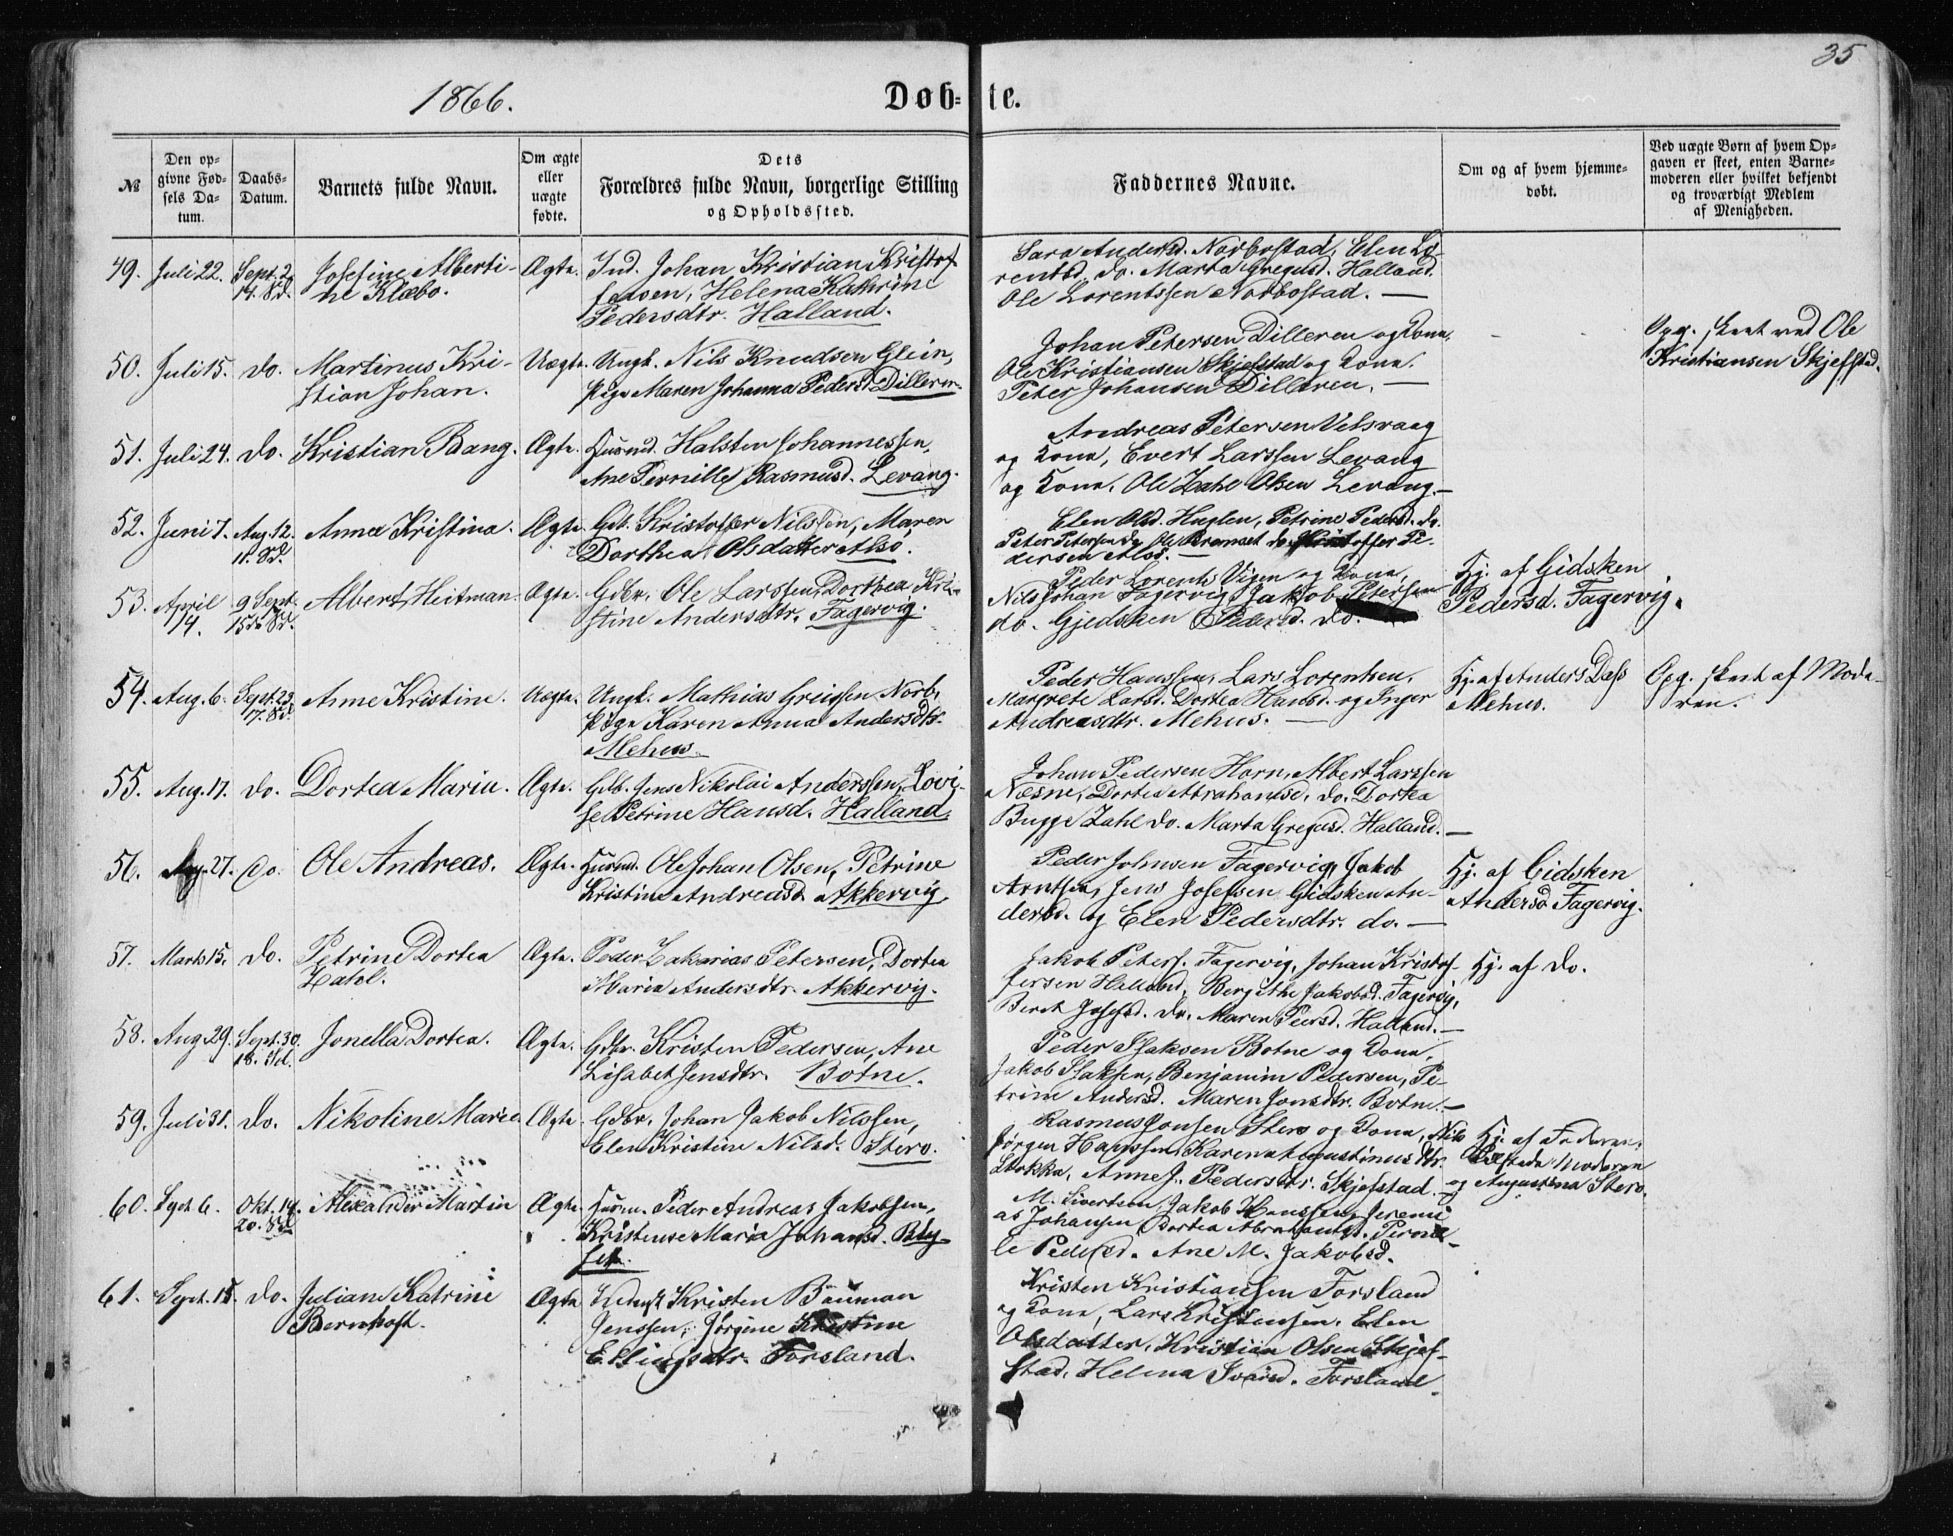 35
1866.
Døb=te.
№
Den opgivne Fødsels Datum.
Daabs-Datum.
Barnets fulde Navn.
Om ægte eller uægte fødte.
Dets Forældres fulde Navn, borgerlige Stilling og Opholdssted.
Faddernes Navne.
Om og af hvem hjemmedøbt.
Ved uægte Børn af hvem Opgaven er skeet, enten Barnemoderen eller hvilket bekjendt og troværdigt Medlem af Menigheden.
49. Juli 22. Sept. 2. 14. S.d. Josefine Alberti-
ne Klæbo.
Ægte. Ind. Johan Kristian Kristof
fersen, Helena Kathrine
Pedersdtr. Halland.
Sara Andersd. Norbostad, Elen Lo-
rentsd. do. Marta Gregusd. Halland.
Ole Lorentssen Norbostad. —
50. Juli 15. do. Martinus Kri-
stian Johan.
Uægte. Ungk. Nils Knudsen Glein,
Pige Maren Johanna Pedersd. Dilleren.
Johan Petersen Dilleren og Kona,
Ole Kristiansen Skjefstad og Kona.
Peter Johansen Dilleren. —
Opg. skeet ved Ole
Kristiansen Skjefstad.
51. Juli 24. do. Kristian Bang.
Ægte. Husmd. Halsten Johannessen,
Ane Pernille Rasmusd. Levang.
Andreas Petersen Velsvaag
og Kona, Evert Larssen Levang
og Kona, Ole Zahl Olsen Levang. —
52. Juni 7. Aug. 12. 11. S.d. Anna Kristina.
Ægte. Gdb. Kristoffer Nilssen, Maren
Dorthea Olsdatter Alsø.
Elen Olsd. Huglen, Petrine Pedersd. do.
Peter Petersen do. Ole Kristoffer Pe-
dersen Alsø. —
53. April 14. 9 Sept. 15de S.d. Albert Heitman.
Ægte. Gdbr. Ole Larssen, Dorthea Kri-
stine Andersdtr. Fagervig.
Peder Lorents Vigen og Kona,
Nils Johan Fagervig, Jakob Petersen
do. Gjedsken Pedersd. do.
Hj. af Gidsken
Pedersd. Fagervig.
54. Aug. 6. Sept. 23. 17. S.d. Anne Kristine.
Uægte. Ungk. Mathias Greigsen Norb,
Pige Karen Anna Andersdtr.
Mehus.
Peder Hanssen, Lars Lorentsen,
Margrete Larsd. Dortea Hansd. og Inger
Andreasdtr. Mehus. —
Hj. af Anders Dass
Mehus.
Opg. skeet af Mode-
ren.
55. Aug. 17. do. Dortea Maria.
Ægte. Gdb. Jens Nikolai Anderssen, Lovi-
se Petrine Hansd. Halland.
Johan Pedersen Horn, Albert Larssen
Næsne, Dortea Abrahamsd. do. Dortea
Bugge Zahl do. Marta Gregusd. Halland. —
56. Aug. 27. do. Ole Andreas.
Ægte. Husmd. Ole Johan Olsen, Petrine
Kristine Andreasd. Akkervig.
Peder Johnsen Fagervig, Jakob
Arntsen, Jens Josefsen Gidsken An-
dersd. og Elen Pedersdtr. do. —
Hj. af Gidsken
Andersd. Fagervig.
57. Marts 15. do. Petrine Dortea
Zahl.
Ægte. Peder Zakarias Petersen, Dortea
Maria Andersdtr. Akkervig.
Jakob Peters. Fagervig, Johan Kristof-
fersen Halland, Bergithe Jakobsd. Fagervig,
Beret Josefsd. do. Maren Peersd. Halland. —
Hj. af do.
58. Aug. 29. Sept. 30. 18. S.d. Jonella Dortea.
Ægte. Gdbr. Kristen Pedersen, Ane
Lisabet Jensdtr. Botne.
Peder Isaksen Botne og Kona,
Jakob Isaksen, Benjamin Pedersen, Pe-
trine Andersd. Maren Jonsdtr. Botne. —
59. Juli 31. do. Nikoline Marie
Ægte. Gdbr. Johan Jakob Nilssen,
Elen Kristine Nilsd. Stero.
Rasmus Jonsen Stero og Kona, Nils
Jørgen Hanssen, Karen Augustinusdtr.
Stokka, Anne J. Pedersdtr. Skjefstad. —
Hj. af Faderen,
tilstede Moderen
og Augustina Stero.
60. Sept. 6. Okt. 14. 20. S.d. Alexander Martin
Ægte. Husm. Peder Andreas Jakobsen,
Kristense Maria Johansd. Bly-
set.
M. Sivertsen, Jakob Hanssen, Jeremi-
as Johansen, Dortea Abrahamsd. Pernil-
le Pedersd. Ane M. Jakobsd.
61. Sept. 15. do. Juliane Katrine
Bernhoft.
Ægte Inderst Kristen Bauman
Jenssen, Jørgine Kristine
Ellingsdtr. Forsland.
Kristen Kristiansen Forsland
og Kona, Lars Kristensen, Elen
Olsdatter, Kristian Olsen Skjef-
stad, Helena Ivarsd. Forsland.